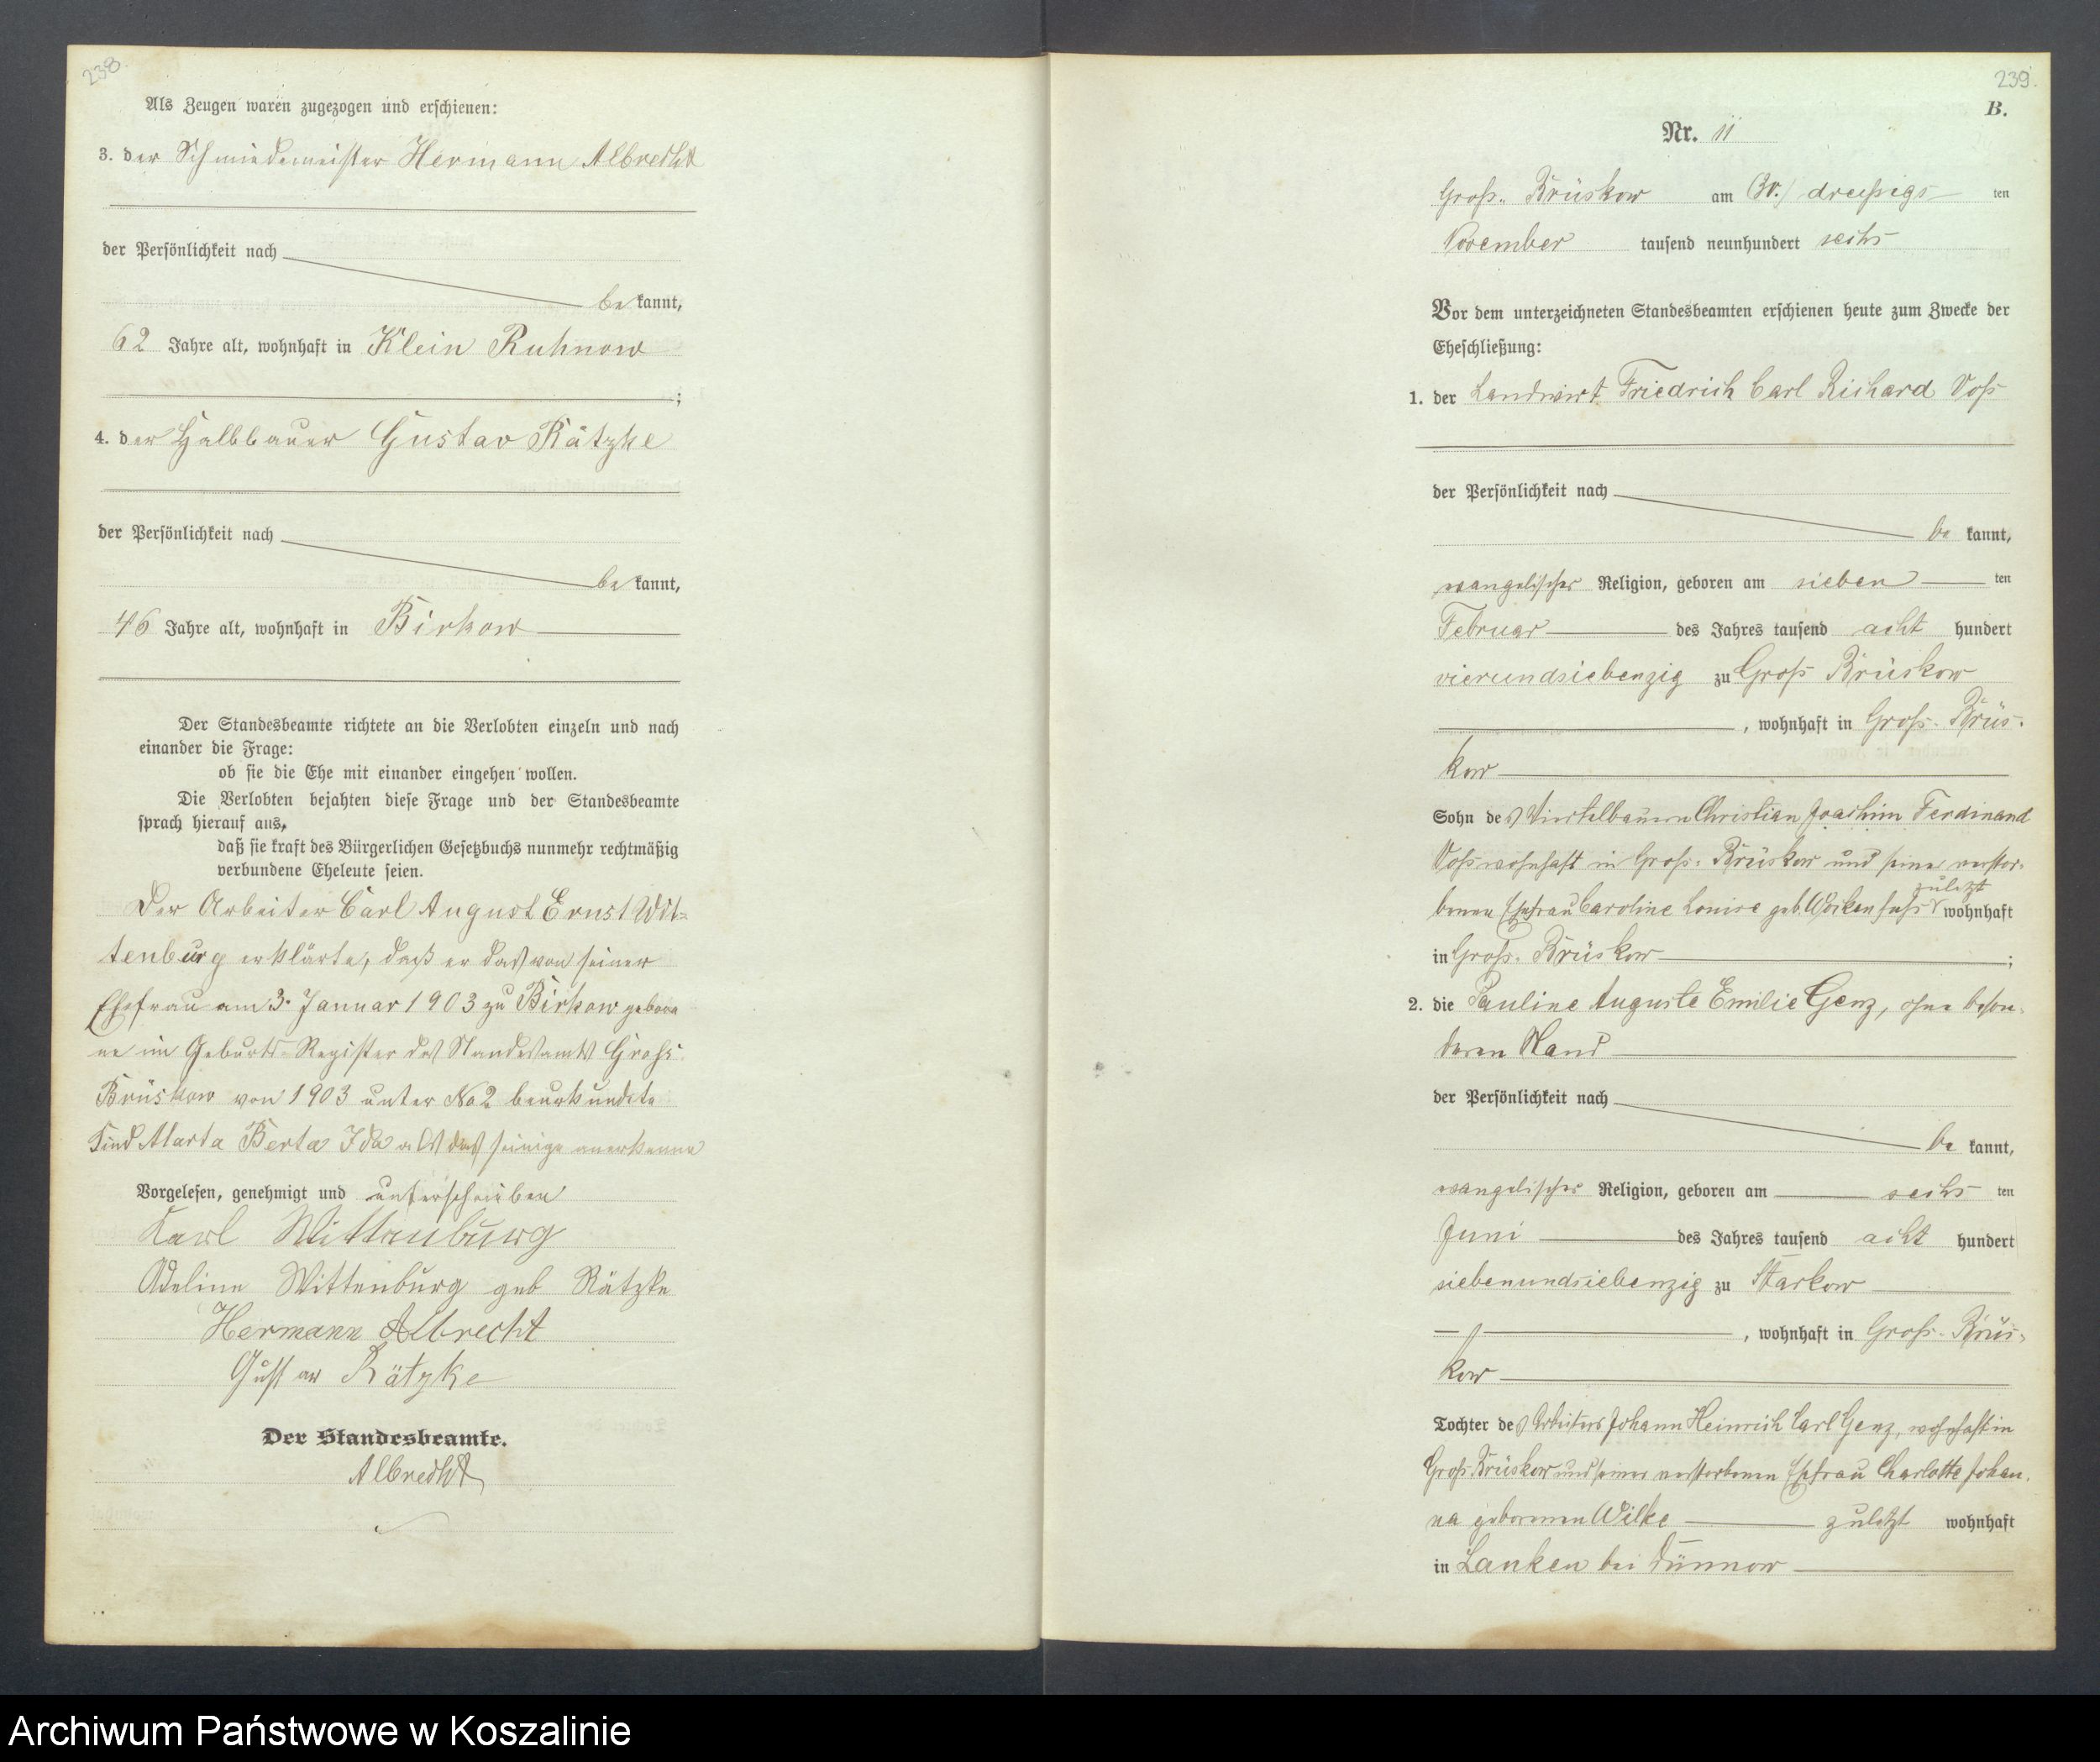 238.
Als Zeugen waren zugezogen und erschienen:
3. der Schmiedemeister Hermann Albrecht
der Persönlichkeit nach
be kannt,
62 Jahre alt, wohnhaft in Klein Ruhnow
;
4. der Halbbauer Gustav Rätzke
der Persönlichkeit nach
be kannt,
46 Jahre alt, wohnhaft in Birkow
Der Standesbeamte richtete an die Verlobten einzeln und nach
einander die Frage:
ob sie die Ehe mit einander eingehen wollen.
Die Verlobten bejahten diese Frage und der Standesbeamte
sprach hierauf aus,
daß sie kraft des Bürgerlichen Gesetzbuchs nunmehr rechtmäßig
verbundene Eheleute seien.
Der Arbeiter Carl August Ernst Wit-
tenburg erklärte, daß er das von seiner
Ehefrau am 3. Januar 1903 zu Birkow gebore
ne im Geburts-Register des Standesamts Groß
Brüskow von 1903 unter No 2 beurkundete
Kind Marta Berta Ida als das seinige anerkenne
Vorgelesen, genehmigt und unterschrieben
Karl Wittenburg
Adeline Wittenburg geb Rätzke
Hermann Albrecht
Gustav Rätzke
Der Standesbeamte.
Albrecht
239.
B.
Nr. 11
Groß-Brüskow am (30.) dreißigs ten
November tausend neunhundert sechs
Vor dem unterzeichneten Standesbeamten erschienen heute zum Zwecke der
Eheschließung:
1. der Landwirt Friedrich Carl Richard Voß
der Persönlichkeit nach
be kannt,
evangelischer Religion, geboren am sieben ten
Februar des Jahres tausend acht hundert
vierundsiebenzig zu Groß Brüskow
, wohnhaft in Groß-Brüs-
kow
Sohn des Viertelbauern Christian Joachim Ferdinand
Voß wohnhaft in Groß-Brüskow und seiner verstor-
zuletzt
benen Ehefrau Caroline Louise geb. wohnhaft
in Groß-Brüskow ;
2. die Pauline Auguste Emilie Genz, ohne beson-
deren Stand
der Persönlichkeit nach
be kannt,
evangelischer Religion, geboren am sechs ten
Juni des Jahres tausend acht hundert
siebenundsiebenzig zu Starkow
, wohnhaft in Groß-Brüs-
kow
Tochter des Arbeiters Johann Heinrich Carl Genz, wohnhaft in
Groß-Brüskow und seiner verstorbenen Ehefrau Charlotte Johan-
na geborenen Wilke zuletzt wohnhaft
in Lanken bei Dünnow
Archiwum Państwowe w Koszalinie